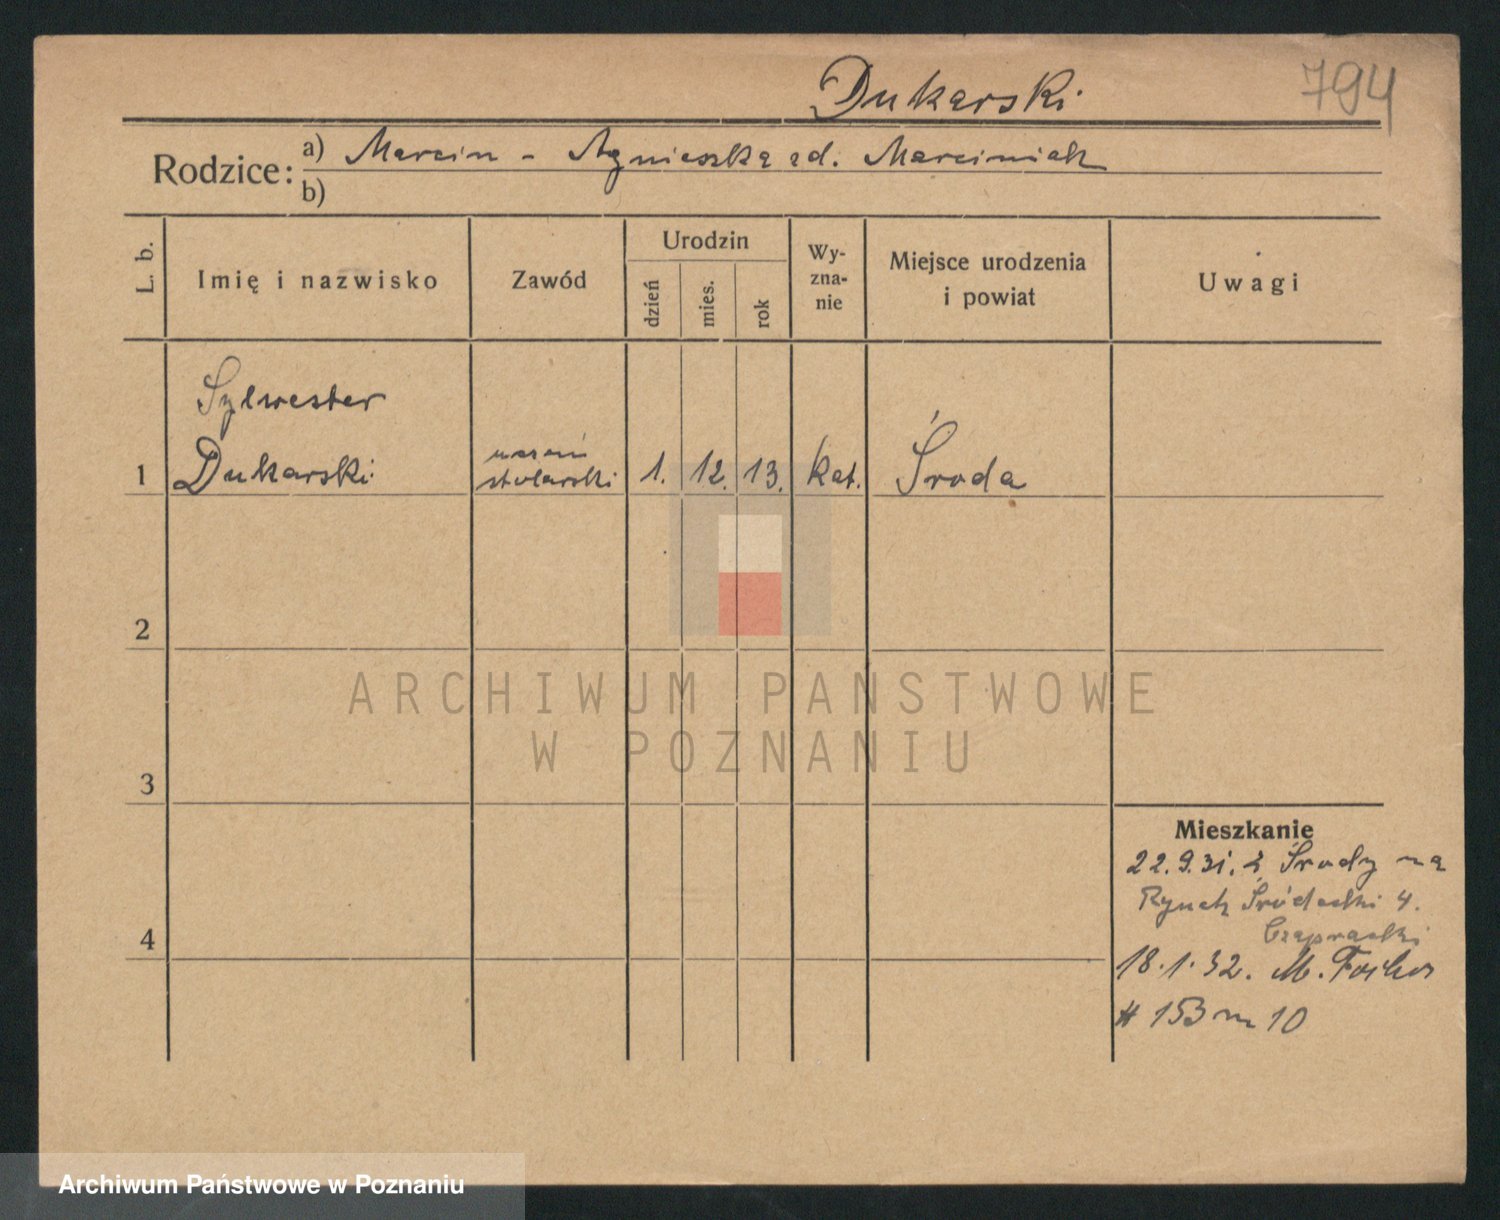 Dukarski
794
Rodzice: a) Marcin - Agnieszka zd. Marciniak
b)
L. b.
Imię i nazwisko
Zawód
Urodzin
dzień
mies.
rok
Wy-
zna-
nie
Miejsce urodzenia
i powiat
Uwagi
Sylwester
uczeń
1 Dukarski stolarski 1. 12. 13. kat. Środa
2
ARCHIWUM PAŃSTWOWE
W POZNANIU
3
Mieszkanie
22.9.31. z Środy na
Rynek Śródecki 4.
4
18.1.32. M. Focha
# 153 m 10
Archiwum Państwowe w Poznaniu